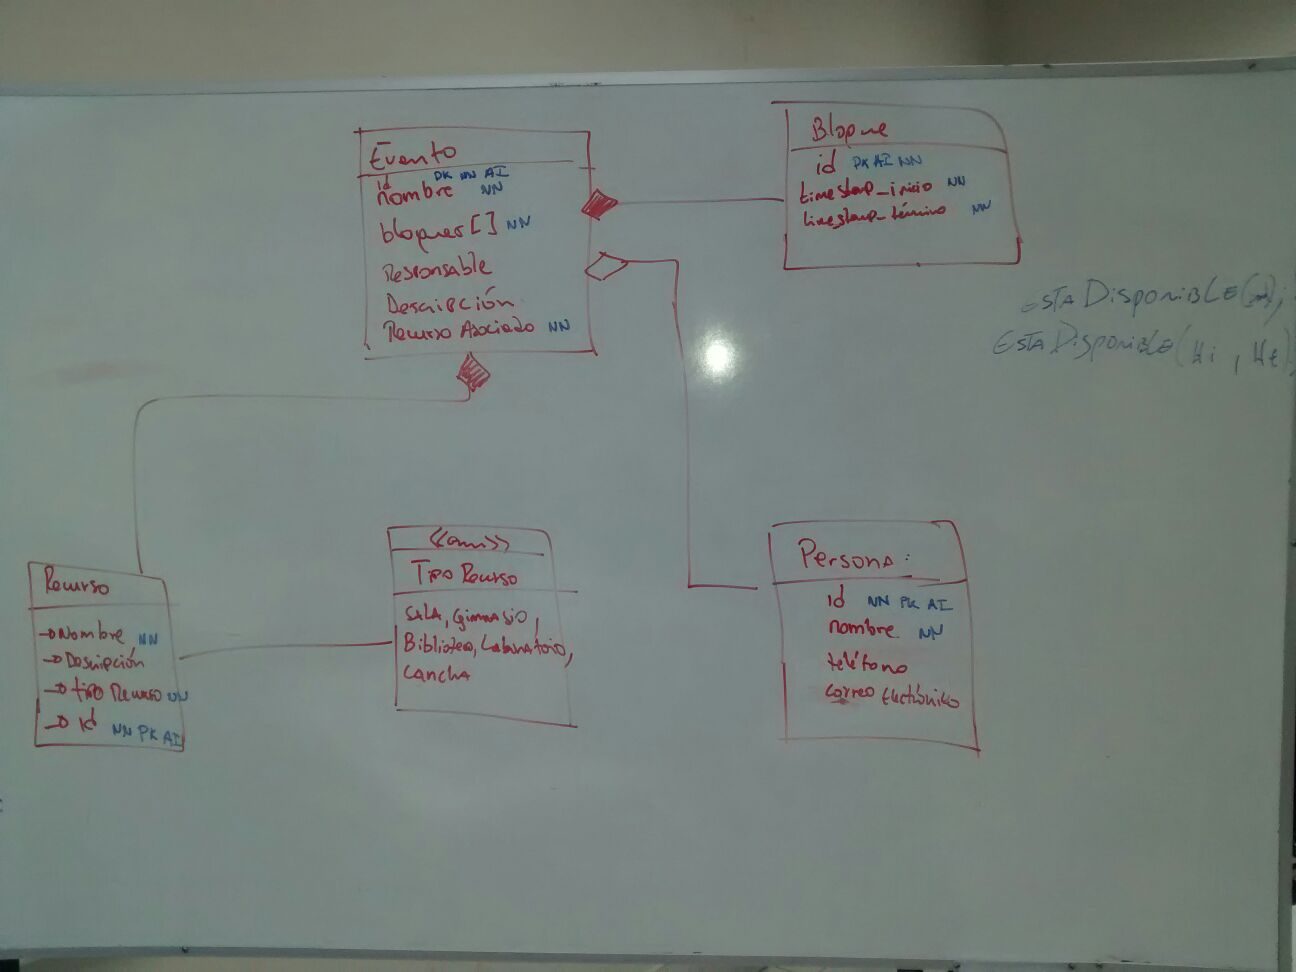 Evento
id PK NN AI
nombre NN
bloques[] NN
Responsable
Descripción
Recurso Asociado NN
Bloque
id PK AI NN
timestamp_inicio NN
timestamp_término NN
ESTA DISPONIBLE( );
ESTA DISPONIBLE(Hi, Ht)
Recurso
→ Nombre NN
→ Descripción
→ tipo Recurso NN
→ Id NN PK AI
TIPO Recurso
SALA, Gimnasio,
Biblioteca, Laboratorio,
Cancha
Persona:
id NN PK AI
nombre NN
teléfono
correo Electrónico